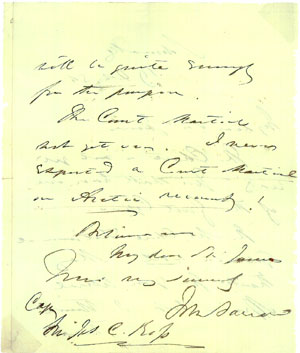 will be quite enough
for the purpose.
The Court Martial
not yet over. I never
expected a Court Martial
on Arctic records!
Believe me
My dear Sir James
Yours very sincerely
John Barrow
Capt
Sir Jas C. Ross